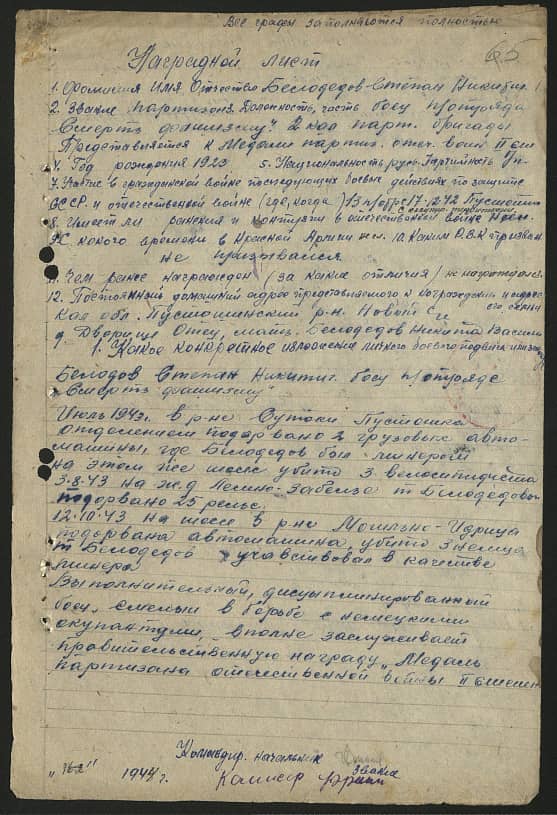 Все графы заполняются полностью
65
Наградной лист
1. Фамилия Имя Отчество Белодедов Степан Никитич
2. Звание партизан. Должность, часть боец п/отряда
"Смерть фашизму" 2 кал парт. бригады
Представляется к Медали партиз. отеч. войн II ст
4. Год рождения 1923 5. Национальность русс. Партийность б/п
7. Участие в гражданской войне последующих боевых действиях по защите
СССР и отечественной войне (где, когда) В п/отр с 17.12.42 Пустошк
8. Имеет ли ранения и контузии в отечественной войне
9. С какого времени в Красной Армии 10. Каким Р.В.К призван
не призывался
11. Чем ранее награжден (за какие отличия) не награждался
12. Постоянный домашний адрес представляемого к награждению и адрес
его семьи
кая обл. Пустошкинский р-н. Новый с/с
д. Дворище Отец, мать. Белодедов Никита Васил
1. Какое конкретное изложение личного боевого подвига
Белодедов Степан Никитич. боец п/отряда
"Смерть фашизму"
Июль 1943г. в р-не Сутоки Пустошка
отделением подорвано 2 грузовых авто-
машины, где Белодедов был минером
на этом же шоссе убито 3 велосипедиста
3.8.43 на ж.д Нечино-Забелье т Белодедовым
подорвано 25 рельс.
12.10.43 на шоссе в р-не Могильно-Идрица
подорвана автомашина, убито 3 немца
т Белодедов участвовал в качестве
минера
Выполнительный, дисциплинированный
боец, смелый в борьбе с немецкими
окупантами, вполне заслуживает
правительственную награду "Медаль
партизана отечественной войны II степени
Командир. начальник
звание
" " 1944 г. Комиссар